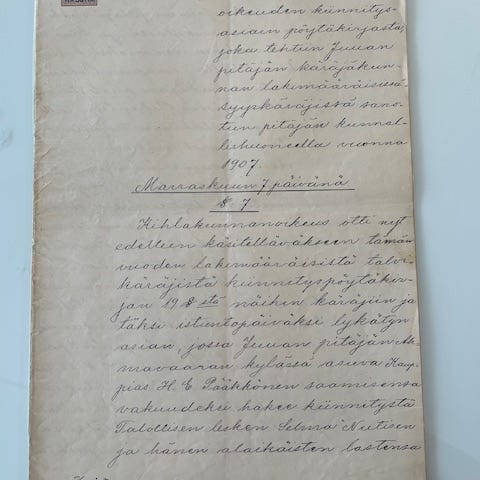 oikeuden kiinnitys-
asiain pöytäkirjasta,
joka tehtiin Juuan
pitäjän käräjäkun-
nan lakimääräisissä
syyskäräjissä sano-
tun pitäjän kunnal-
lishuoneella vuonna
1907.
Marraskuun 7 päivänä
§. 7
Kihlakunnanoikeus otti nyt
edelleen käsiteltäväkseen tämän
vuoden lakimääräisistä talvi-
käräjistä kiinnityspöytäkir-
jan 19 § stä näihin käräjiin ja
täksi istuntopäiväksi lykätyn
asian, jossa Juuan pitäjän
mavaaran kylässä asuva Kaup-
pias H. E Pääkkönen saamisensa
vakuudeksi hakee kiinnitystä
Talollisen lesken Selma Nutisen
ja hänen alaikäisten lastensa